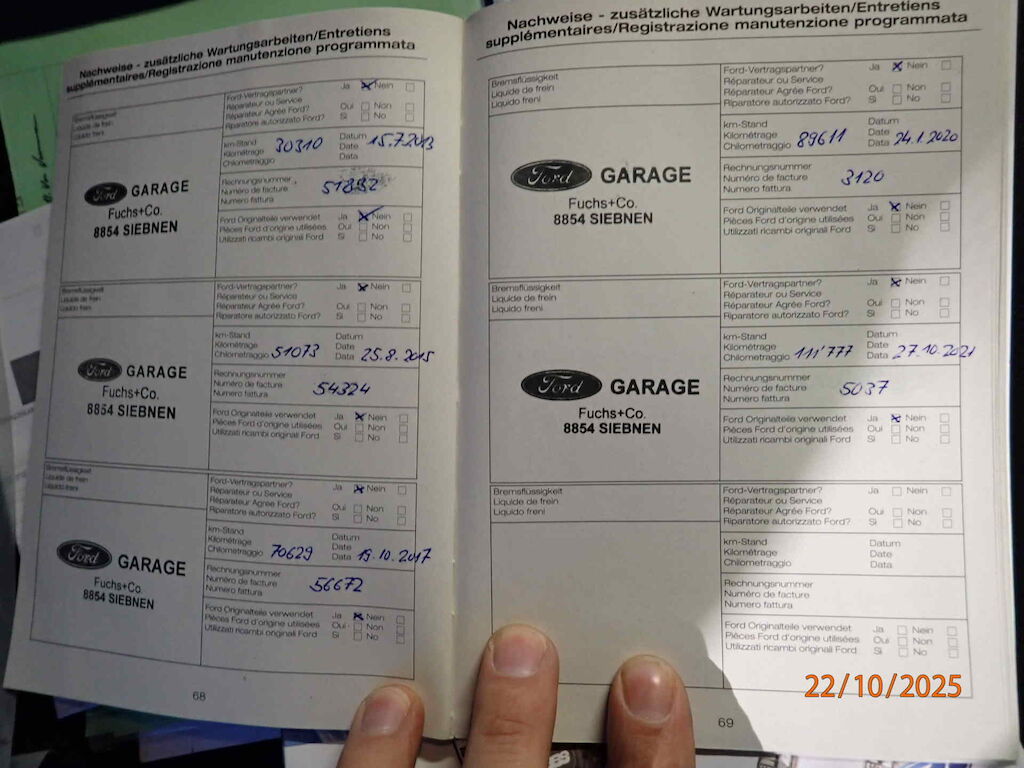 Nachweise - zusätzliche Wartungsarbeiten/Entretiens
supplémentaires/Registrazione manutenzione programmata
Bremsflüssigkeit
Liquide de frein
Liquido freni
Ford-Vertragspartner? Ja ☒ Nein ☐
Réparateur ou Service
Réparateur Agrée Ford? Oui ☐ Non ☐
Riparatore autorizzato Ford? Si ☐ No ☐
Ford GARAGE
Fuchs+Co.
8854 SIEBNEN
km-Stand Datum
Kilométrage 30310 Date 15.7.2013
Chilometraggio Data
Rechnungsnummer
Numéro de facture 51892
Numero fattura
Ford Originalteile verwendet Ja ☒ Nein ☐
Pièces Ford d'origine utilisées Oui ☐ Non ☐
Utilizzati ricambi originali Ford Si ☐ No ☐
Bremsflüssigkeit
Liquide de frein
Liquido freni
Ford-Vertragspartner? Ja ☒ Nein ☐
Réparateur ou Service
Réparateur Agrée Ford? Oui ☐ Non ☐
Riparatore autorizzato Ford? Si ☐ No ☐
Ford GARAGE
Fuchs+Co.
8854 SIEBNEN
km-Stand Datum
Kilométrage Date
Chilometraggio 51073 Data 25.8.2015
Rechnungsnummer
Numéro de facture 54324
Numero fattura
Ford Originalteile verwendet Ja ☒ Nein ☐
Pièces Ford d'origine utilisées Oui ☐ Non ☐
Utilizzati ricambi originali Ford Si ☐ No ☐
Bremsflüssigkeit
Liquide de frein
Liquido freni
Ford-Vertragspartner? Ja ☒ Nein ☐
Réparateur ou Service
Réparateur Agrée Ford? Oui ☐ Non ☐
Riparatore autorizzato Ford? Si ☐ No ☐
Ford GARAGE
Fuchs+Co.
8854 SIEBNEN
km-Stand Datum
Kilométrage Date
Chilometraggio 70629 Data 19.10.2017
Rechnungsnummer
Numéro de facture 56672
Numero fattura
Ford Originalteile verwendet Ja ☒ Nein ☐
Pièces Ford d'origine utilisées Oui ☐ Non ☐
Utilizzati ricambi originali Ford Si ☐ No ☐
68
Nachweise - zusätzliche Wartungsarbeiten/Entretiens
supplémentaires/Registrazione manutenzione programmata
Bremsflüssigkeit
Liquide de frein
Liquido freni
Ford-Vertragspartner? Ja ☒ Nein ☐
Réparateur ou Service
Réparateur Agrée Ford? Oui ☐ Non ☐
Riparatore autorizzato Ford? Si ☐ No ☐
Ford GARAGE
Fuchs+Co.
8854 SIEBNEN
km-Stand Datum
Kilométrage Date
Chilometraggio 89611 Data 24.1.2020
Rechnungsnummer
Numéro de facture 3120
Numero fattura
Ford Originalteile verwendet Ja ☒ Nein ☐
Pièces Ford d'origine utilisées Oui ☐ Non ☐
Utilizzati ricambi originali Ford Si ☐ No ☐
Bremsflüssigkeit
Liquide de frein
Liquido freni
Ford-Vertragspartner? Ja ☒ Nein ☐
Réparateur ou Service
Réparateur Agrée Ford? Oui ☐ Non ☐
Riparatore autorizzato Ford? Si ☐ No ☐
Ford GARAGE
Fuchs+Co.
8854 SIEBNEN
km-Stand Datum
Kilométrage Date
Chilometraggio 111'777 Data 27.10.2021
Rechnungsnummer
Numéro de facture 5037
Numero fattura
Ford Originalteile verwendet Ja ☒ Nein ☐
Pièces Ford d'origine utilisées Oui ☐ Non ☐
Utilizzati ricambi originali Ford Si ☐ No ☐
Bremsflüssigkeit
Liquide de frein
Liquido freni
Ford-Vertragspartner? Ja ☐ Nein ☐
Réparateur ou Service
Réparateur Agrée Ford? Oui ☐ Non ☐
Riparatore autorizzato Ford? Si ☐ No ☐
km-Stand Datum
Kilométrage Date
Chilometraggio Data
Rechnungsnummer
Numéro de facture
Numero fattura
Ford Originalteile verwendet Ja ☐ Nein ☐
Pièces Ford d'origine utilisées Oui ☐ Non ☐
Utilizzati ricambi originali Ford Si ☐ No ☐
69
22/10/2025